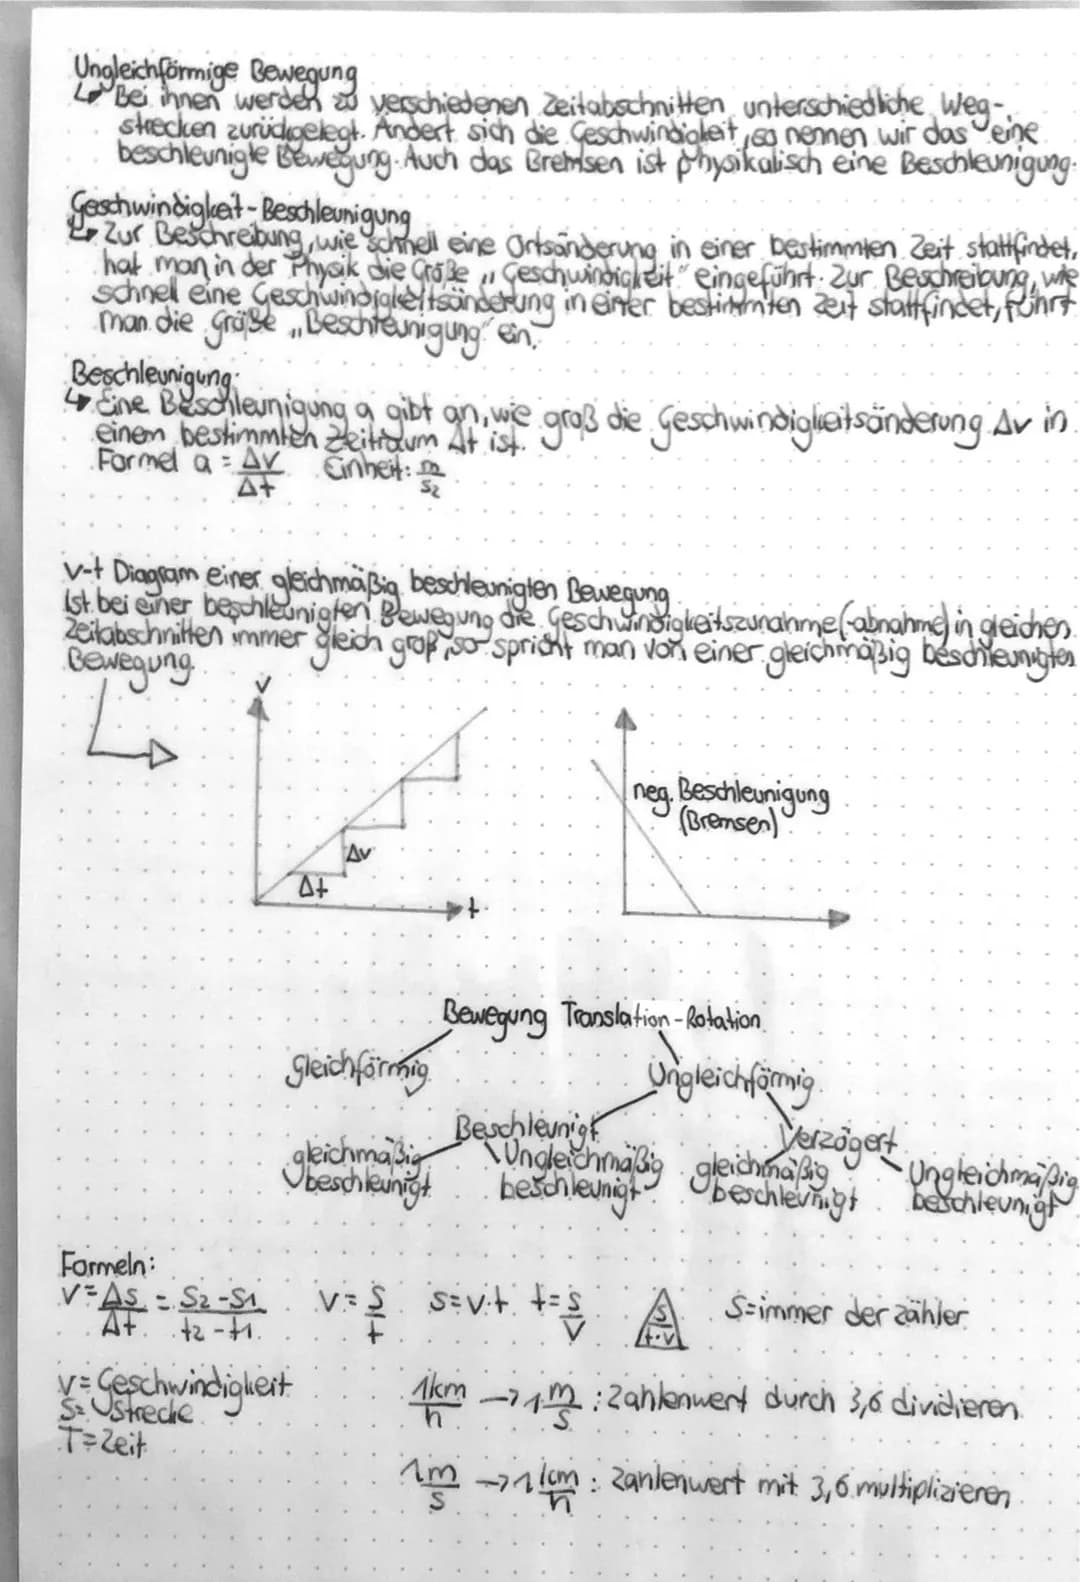 Ungleichförmige Bewegung
↳ Bei ihnen werden zu verschiedenen Zeitabschnitten unterschiedliche Weg-
strecken zurückgelegt. Ändert sich die Geschwindigkeit, so nennen wir das eine
beschleunigte Bewegung. Auch das Bremsen ist physikalisch eine Beschleunigung.
Geschwindigkeit - Beschleunigung
↳ Zur Beschreibung, wie schnell eine Ortsänderung in einer bestimmten Zeit stattfindet,
hat man in der Physik die Größe „Geschwindigkeit" eingeführt. Zur Beschreibung, wie
schnell eine Geschwindigkeitsänderung in einer bestimmten Zeit stattfindet, führt
man die Größe „Beschleunigung" ein.
Beschleunigung:
↳ Eine Beschleunigung a gibt an, wie groß die Geschwindigkeitsänderung Δv in
einem bestimmten Zeitraum Δt ist.
Formel a = Δv/Δt Einheit: m/s2
v-t Diagram einer gleichmäßig beschleunigten Bewegung
Ist bei einer beschleunigten Bewegung die Geschwindigkeitszunahme (-abnahme) in gleichen
Zeitabschnitten immer gleich groß, so spricht man von einer gleichmäßig beschleunigten
Bewegung.
v
neg. Beschleunigung
(Bremsen)
Δv
Δt
t
Bewegung Translation - Rotation
gleichförmig
Ungleichförmig
Beschleunigt
Verzögert
gleichmäßig
beschleunigt
Ungleichmäßig
beschleunigt
gleichmäßig
beschleunigt
Ungleichmäßig
beschleunigt
Formeln:
v = Δs/Δt = s2-s1/t2-t1 v = s/t s = v·t t = s/v s/t·v S = immer der zähler
v = Geschwindigkeit
S = Strecke
T = Zeit
1km/h → 1 m/s : Zahlenwert durch 3,6 dividieren
1m/s → 1 km/h : Zahlenwert mit 3,6 multiplizieren